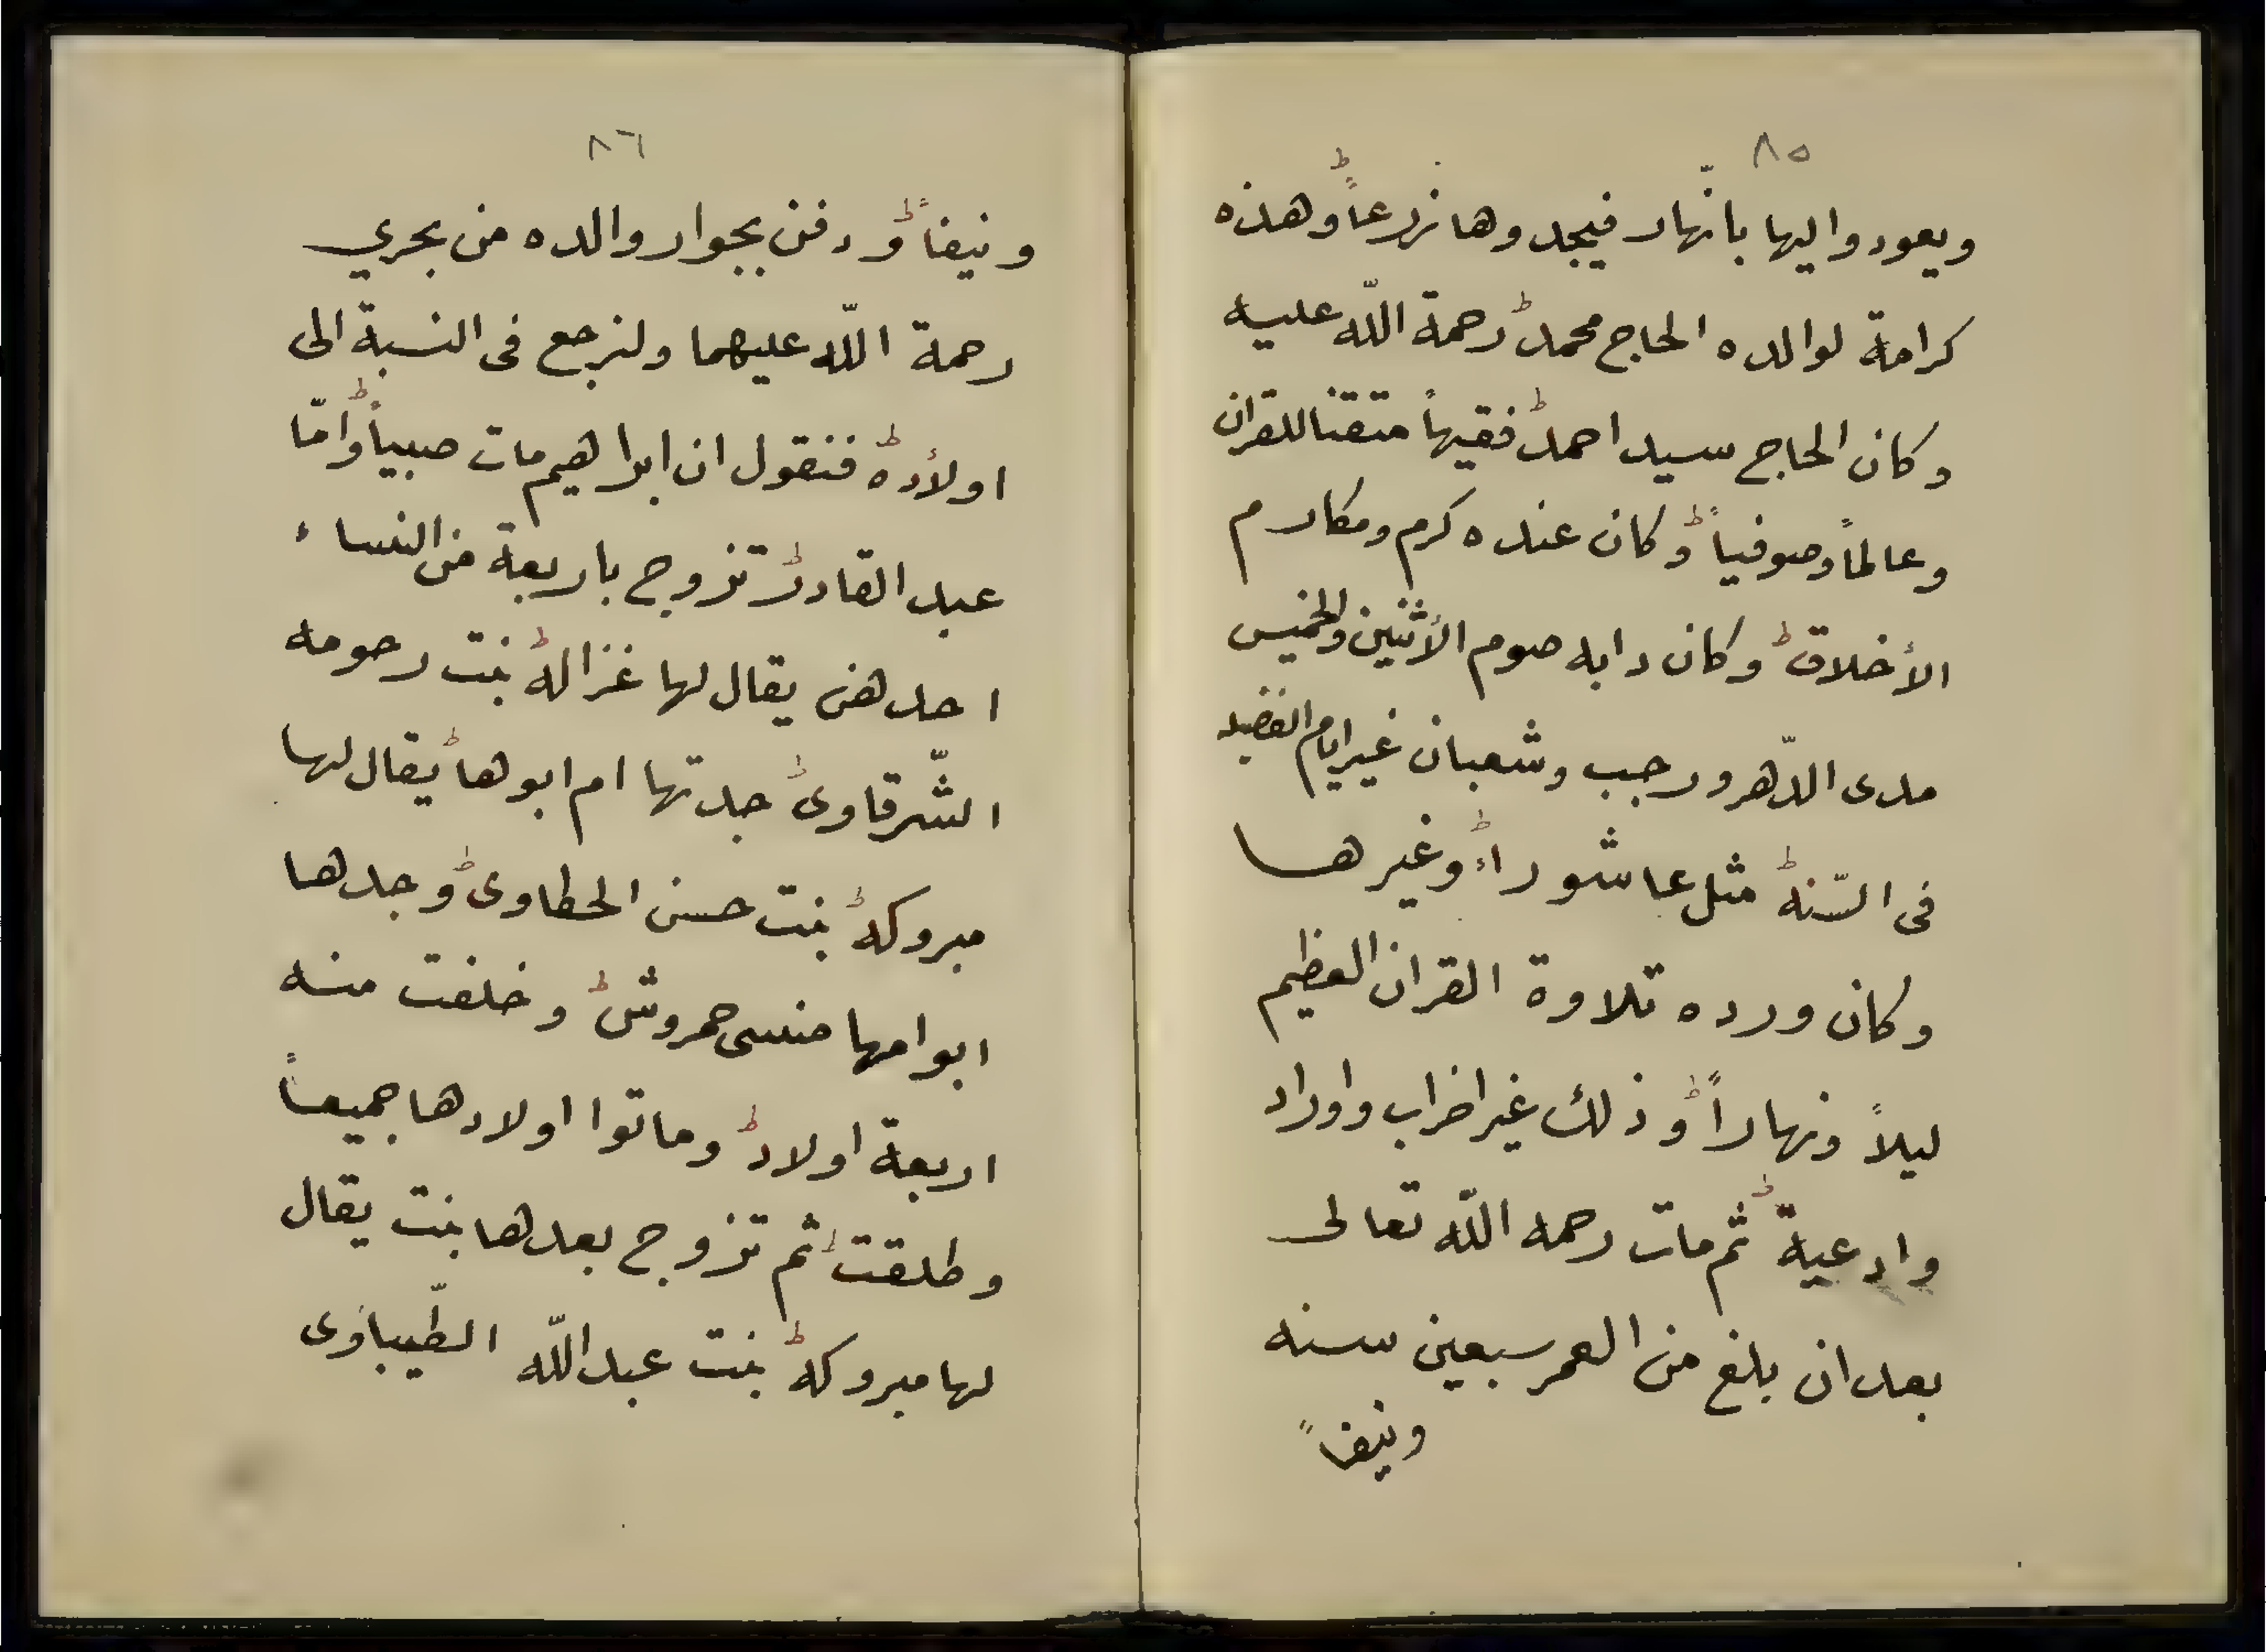 ٨٥
ويعودوا اليها بالنّهار فيجدوها زرعاً وهذه
كرامة لوالده الحاج محمد رحمة اللّه عليه
وكان الحاج سيد احمد فقيهاً متقنا للقران
وعالماً وصوفياً وكان عنده كرم ومكارم
الأخلاق وكان دابه صوم الأثنين والخميس
مدى الدّهر ورجب وشعبان غير ايام الفضيله
فى السّنه مثل عاشوراء وغيرها
وكان ورده تلاوة القران العظيم
ليلاً ونهاراً وذلك غير احزاب واوراد
وادعية ثم مات رحمه اللّه تعالى
بعد ان بلغ من العمر سبعين سنه
ونيفاً
٨٦
ونيفاً ودفن بجوار والده من بحري
رحمة اللّه عليهما ولنرجع فى النسبة الى
اولأده فنقول ان ابراهيم مات صبياً وامّا
عبد القادر تزوج باربعة من النساء
احدهن يقال لها غزاله بنت رحومه
الشّرقاوى جدتها ام ابوها يقال لها
مبروكه بنت حسن الحطاوى وجدها
ابو امها منسى حمروش وخلفت منه
اربعة اولاد وماتوا اولادها جميعاً
وطلقت ثم تزوج بعدها بنت يقال
لها مبروكه بنت عبد اللّه الطّيباوى